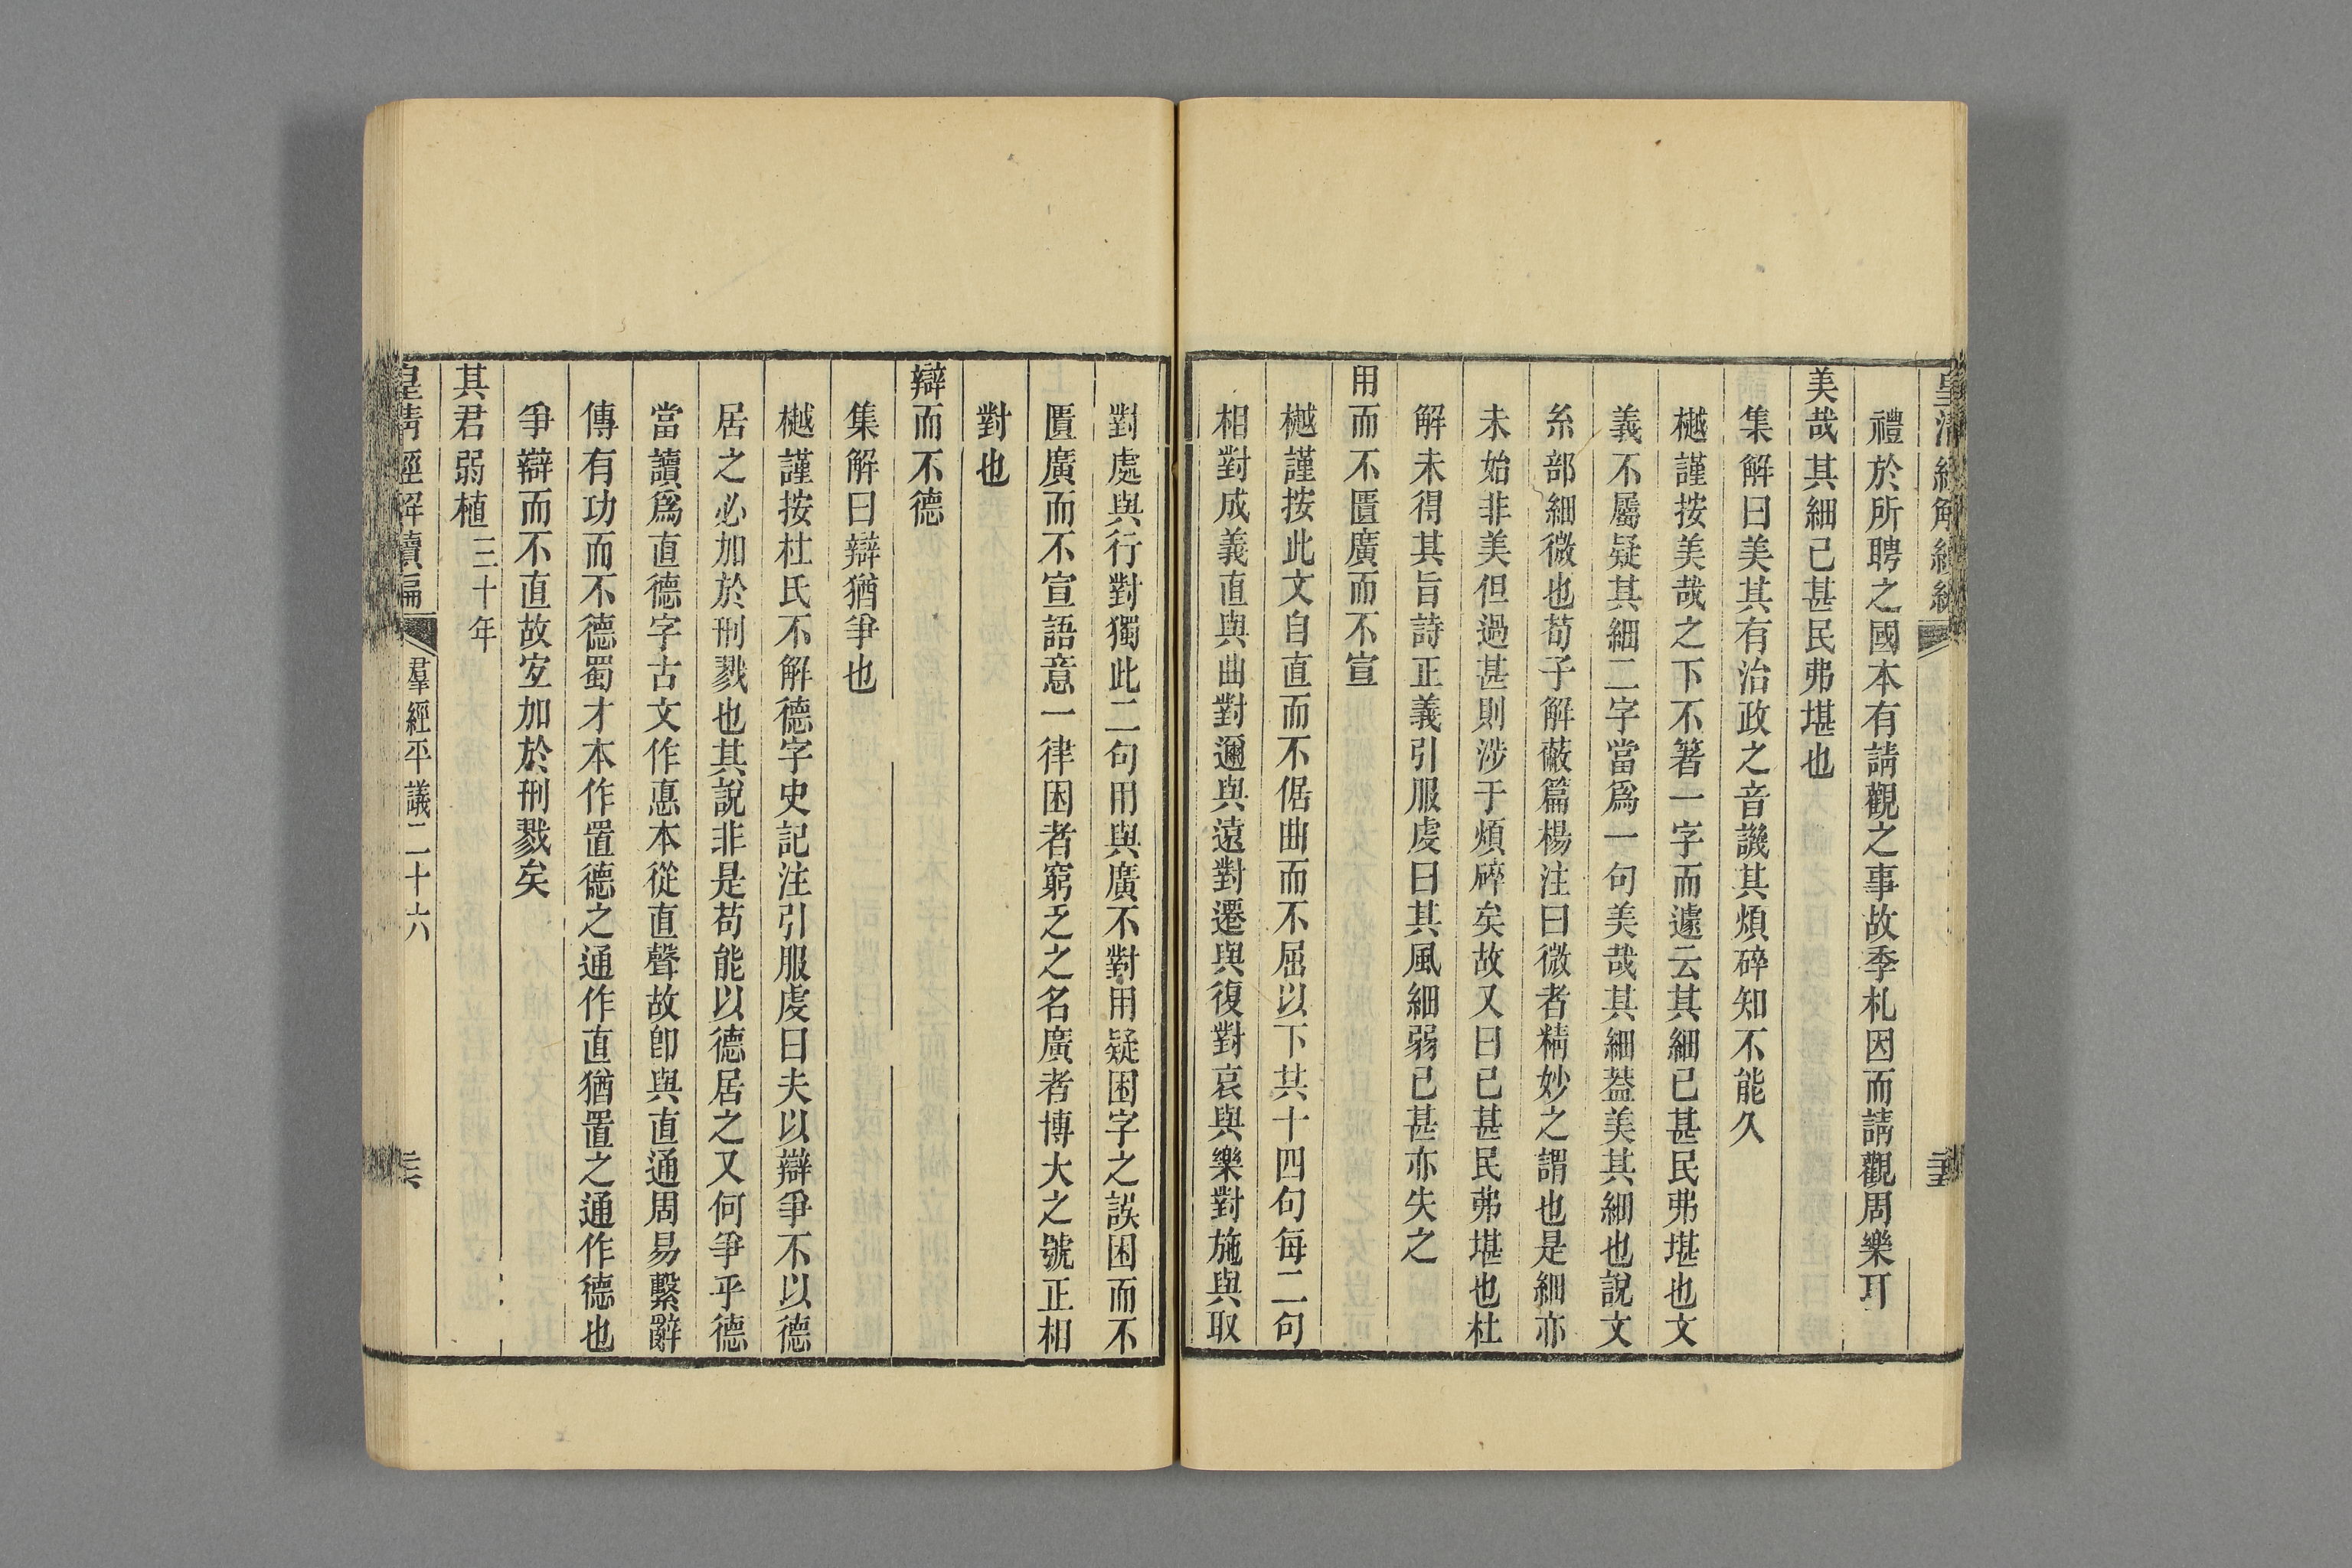 皇清經解續編
禮於所聘之國本有請觀之事故季札因而請觀周樂耳
美哉其細已甚民弗堪也
集解曰美其有治政之音譏其煩碎知不能久
樾謹按美哉之下不箸一字而遽云其細已甚民弗堪也文
義不屬疑其細二字當爲一句美哉其細葢美其細也說文
糸部細微也荀子解蔽篇楊注曰微者精妙之謂也是細亦
未始非美但過甚則涉于煩碎矣故又曰已甚民弗堪也杜
解未得其旨詩正義引服虔曰其風細弱已甚亦失之
用而不匱廣而不宣
樾謹按此文自直而不倨曲而不屈以下共十四句每二句
相對成義直與曲對邇與遠對遷與復對哀與樂對施與取
對處與行對獨此二句用與廣不對用疑困字之誤困而不
匱廣而不宣語意一律困者窮乏之名廣者博大之號正相
對也
辯而不德
集解曰辯猶爭也
樾謹按杜氏不解德字史記注引服虔曰夫以辯爭不以德
居之必加於刑戮也其說非是苟能以德居之又何爭乎德
當讀爲直德字古文作悳本從直聲故卽與直通周易繫辭
傳有功而不德蜀才本作置德之通作直猶置之通作德也
爭辯而不直故宐加於刑戮矣
其君弱植三十年
皇清經解續編 羣經平議二十六